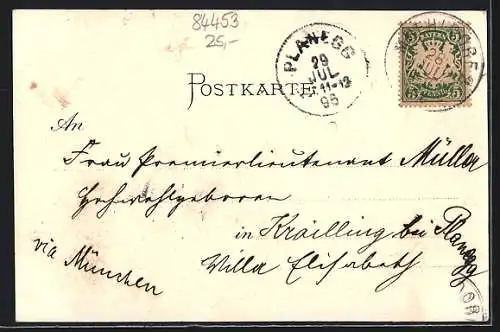 84453
25,-
PLANEGG
29
JUL
11-12
96
BAYERN
5 5
PFENNIG
POSTKARTE
An
Frau Premierlieutenant Müller
Hochwohlgeboren
in Krailling bei Planegg
via München
Villa Elisabeth